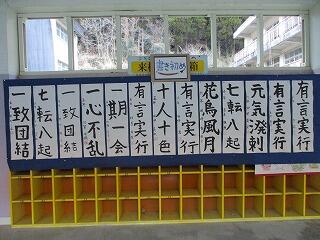 書き初め
来
箱
有言実行
有言実行
元気溌剌
七転八起
花鳥風月
有言実行
十人十色
有言実行
一期一会
一心不乱
一致団結
七転八起
一致団結